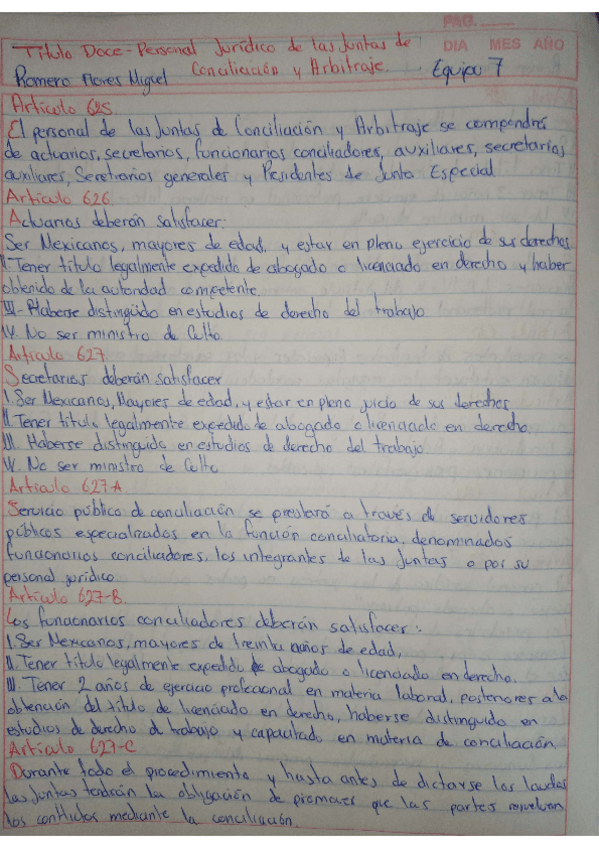 PAG.
Titulo Doce - Personal Jurídico de las Juntas de
DIA MES AÑO
Conciliación y Arbitraje.
Romero Flores Miguel
Equipo 7
Artículo 625
El personal de las Juntas de Conciliación y Arbitraje se compondrá
de actuarios, secretarios, funcionarios conciliadores, auxiliares, secretarios
auxiliares, Secretarios generales y Presidentes de Junta Especial
Artículo 626
Actuarios deberán satisfacer:
Ser Mexicanos, mayores de edad, y estar en pleno ejercicio de sus derechos
II. Tener título legalmente expedido de abogado o licenciado en derecho y haber
obtenido de la autoridad competente.
III.- Haberse distinguido en estudios de derecho del trabajo
IV. No ser ministro de Culto
Artículo 627
Secretarios deberán satisfacer
I. Ser Mexicanos, Mayores de edad, y estar en pleno juicio de sus derechos
II. Tener título legalmente expedido de abogado o licenciado en derecho.
III. Haberse distinguido en estudios de derecho del trabajo
IV. No ser ministro de Culto
Artículo 627-A
Servicio público de conciliación se prestará a través de servidores
públicos especializados en la función conciliatoria, denominados
funcionarios conciliadores, los integrantes de las Juntas o por su
personal jurídico.
Artículo 627-B.
Los funcionarios conciliadores deberán satisfacer:
I. Ser Mexicanos, mayores de treinta años de edad,
II. Tener título legalmente expedido de abogado o licenciado en derecho.
III. Tener 2 años de ejercicio profecional en materia laboral, posteriores a la
obtención del título de licenciado en derecho, haberse distinguido en
estudios de derecho de trabajo y capacitado en materia de conciliación
Artículo 627-C
Durante todo el procedimiento y hasta antes de dictarse los laudos
las Juntas tendrán la obligación de promover que las partes resuelvan
los conflictos mediante la conciliación.